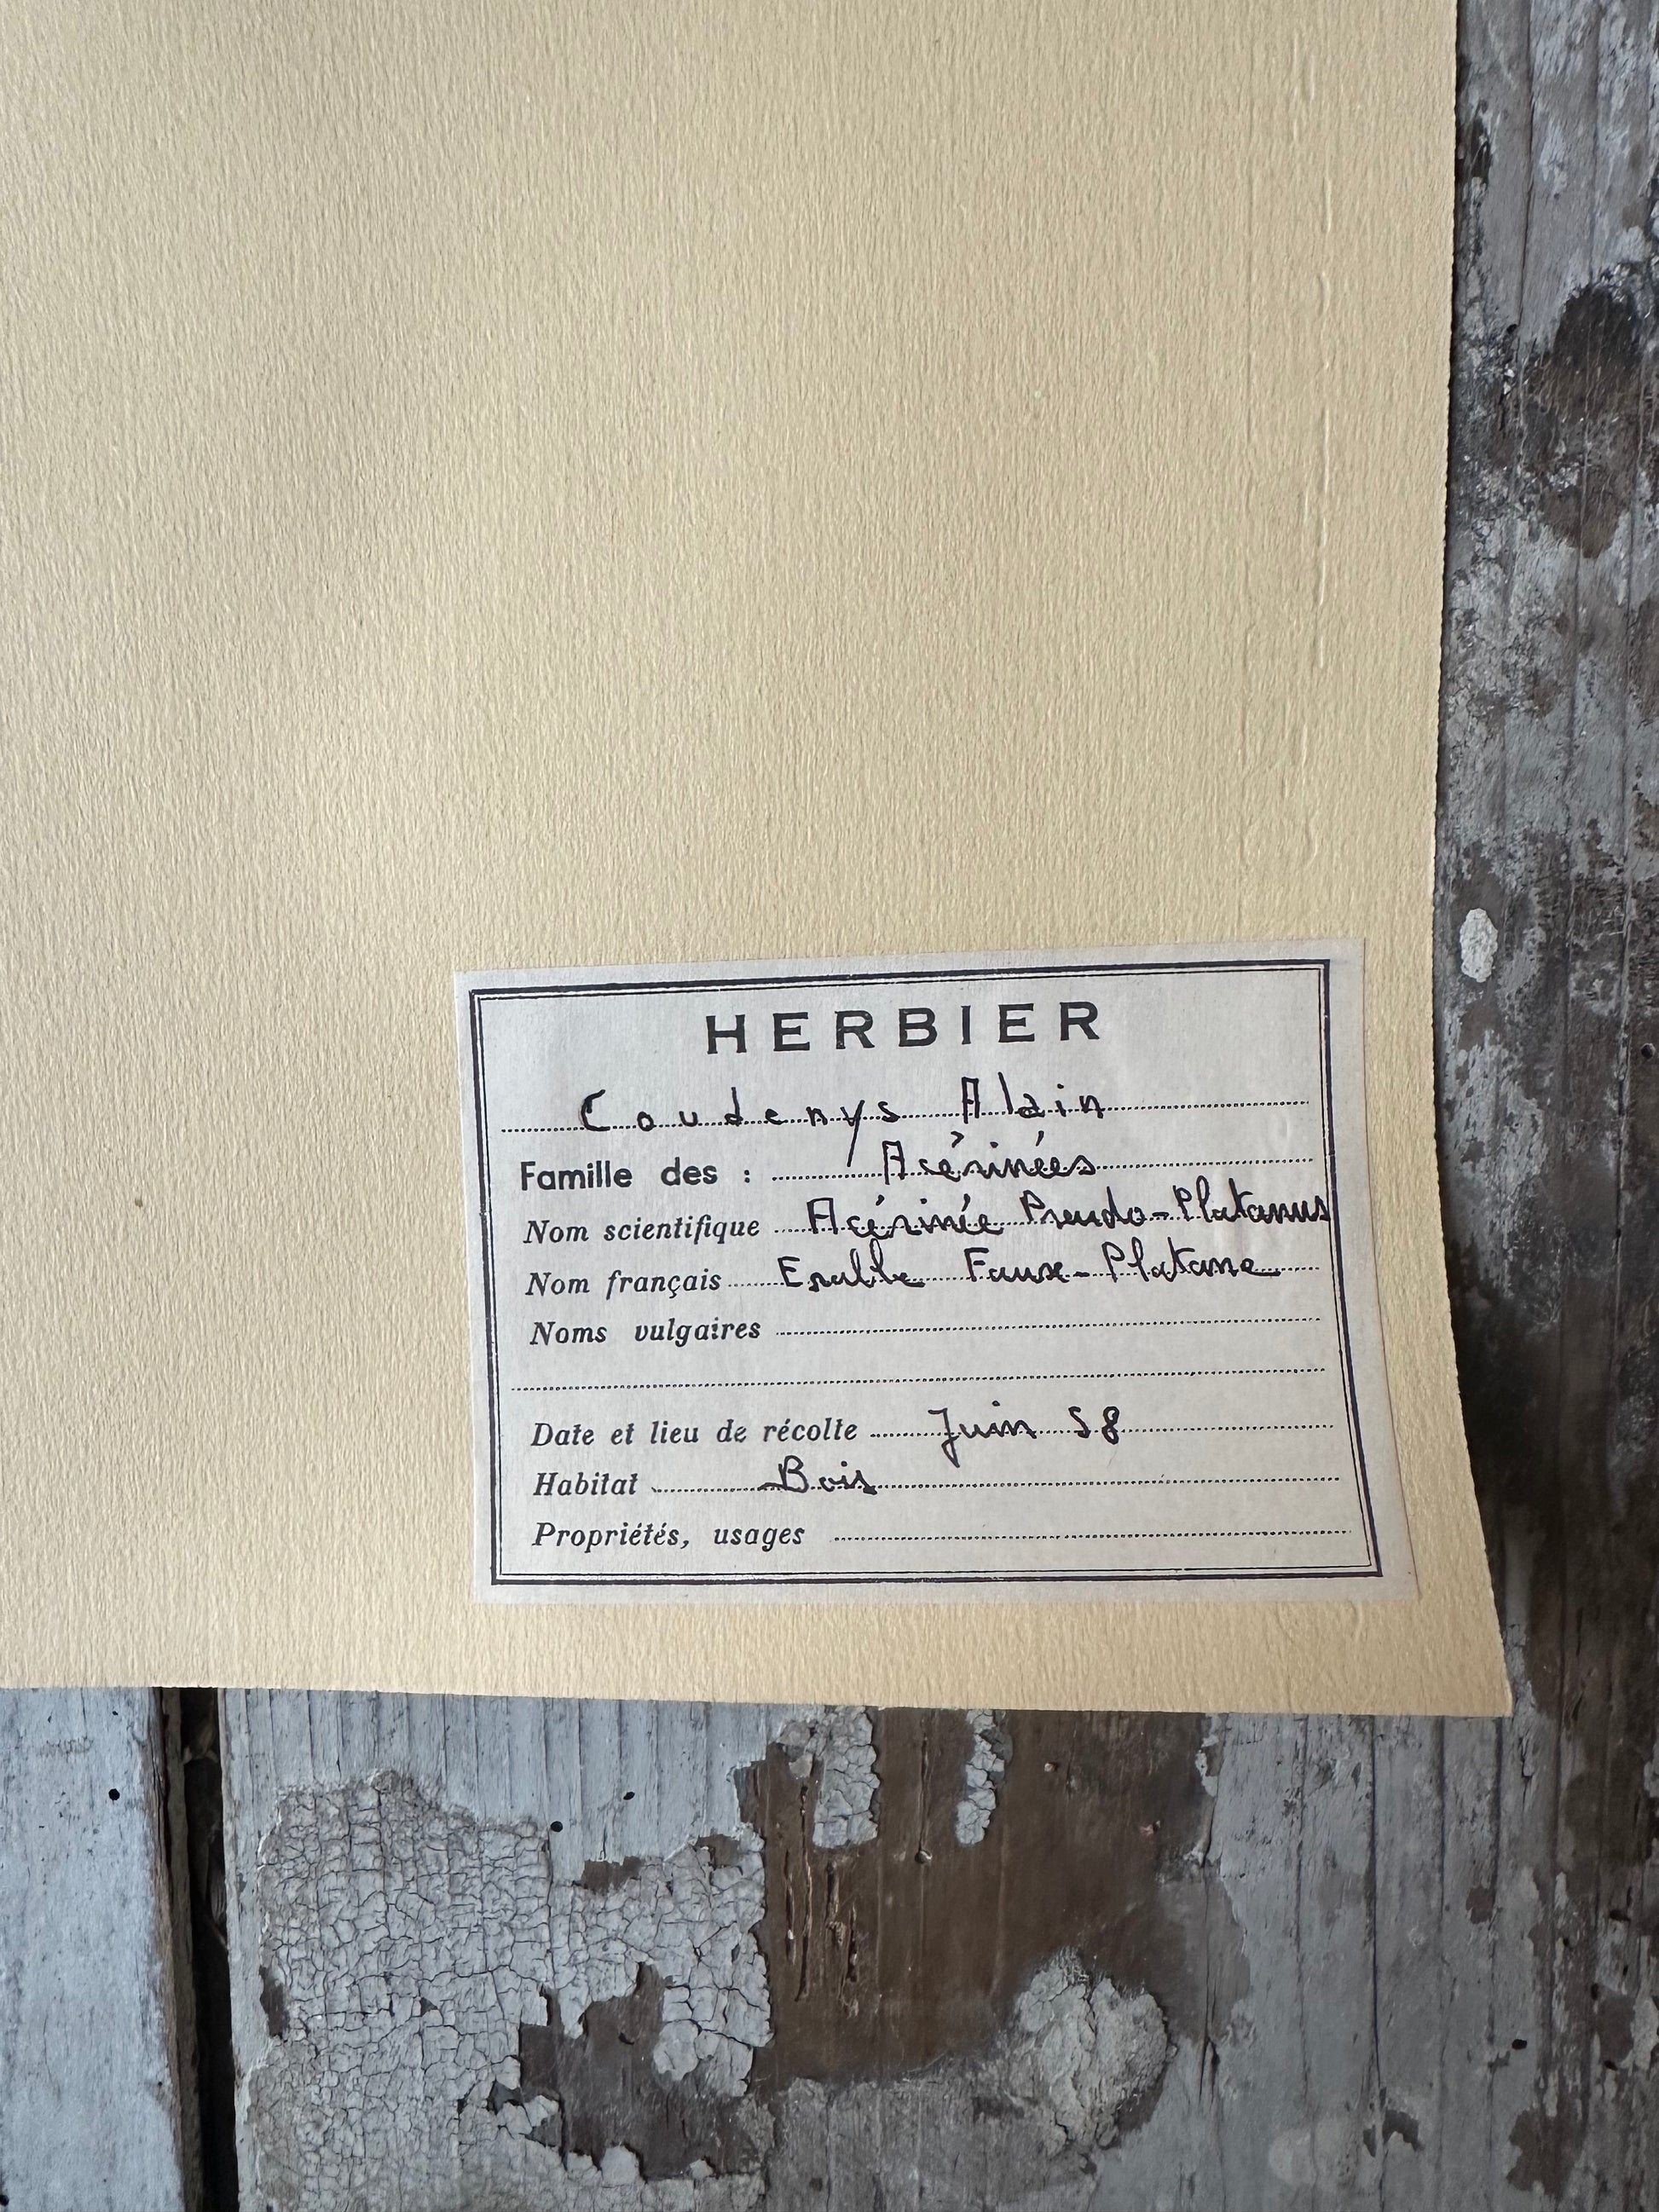 HERBIER
Coudenys Alain
Famille des : Acérinées
Nom scientifique Acérinée Pseudo-Platanus
Nom français Erable Faux-Platane
Noms vulgaires
Date et lieu de récolte Juin 58
Habitat Bois
Propriétés, usages